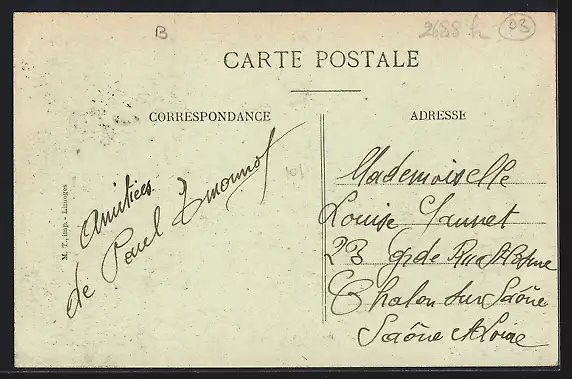 B
2688 h
P3
CARTE POSTALE
CORRESPONDANCE
ADRESSE
M. T., imp. - Limoges
101
Amitiées
de Paul
Mademoiselle
Louise Jaunet
23 gde Rue St Cosme
Chalon sur Saône
Saône et Loire